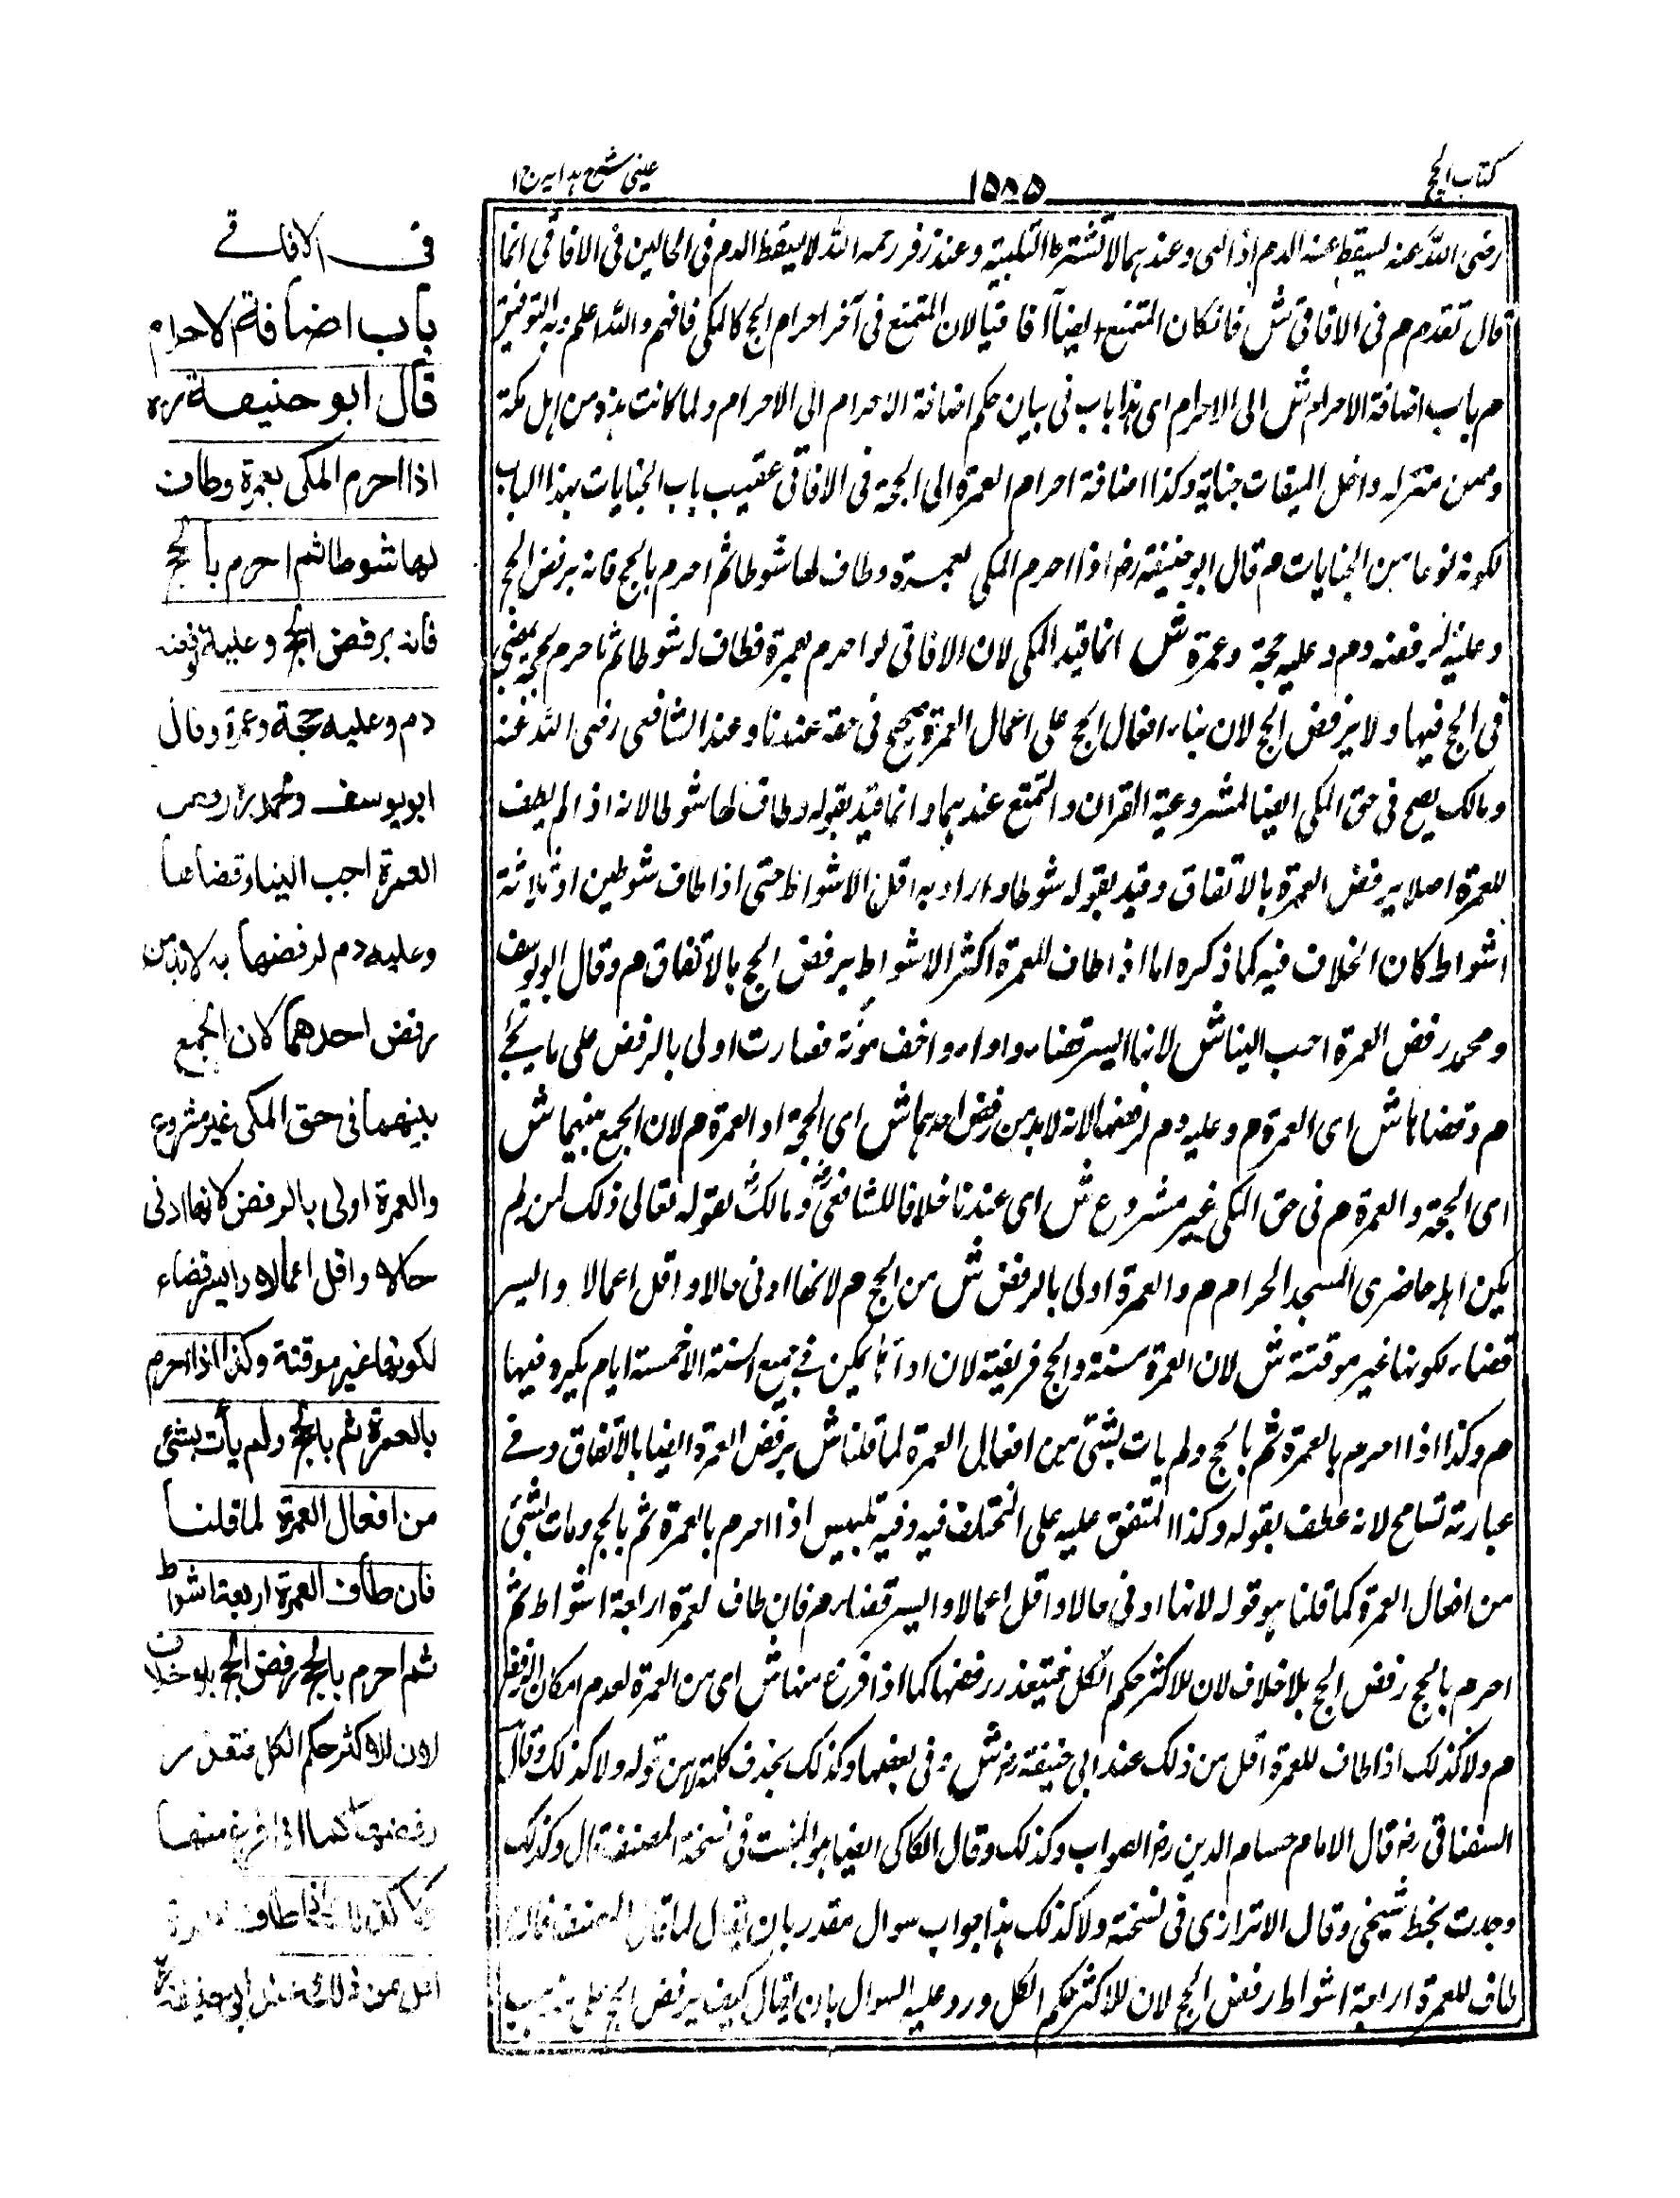 كتاب الحج
١٥٨٥
عينى شرح هدايه ج ١
رضى الله عنه ليسقط عنه الدم اذا لبى وعندهما لا تشترط التلبية وعند زفر رحمه الله لا يسقط الدم فى الحالين فى الافاقى انما
قال تقدم م فى الافاقى ش فانكان المتمتع ايضا آفاقيا لان المتمتع فى آخر احرام الحج كالمكى فافهم والله اعلم وبه التوفيق
م باب اضافة الاحرام ش الى الاحرام اى هذا باب فى بيان حكم اضافة الاحرام الى الاحرام ولما كانت هذه من اهل مكة
وممن منزله داخل الميقات جناية وكذا اضافة احرام العمرة الى الحجة فى الافاقى عقيب باب الجنايات بهذا الباب
لكونه نوعا من الجنايات م قال ابو حنيفة رض اذا احرم المكى بعمرة وطاف لها شوطا ثم احرم بالحج فانه يرفض الحج
وعليه لرفضه دم وعليه حجة وعمرة ش انما قيد المكى لان الافاقى لو احرم بعمرة فطاف له شوطا ثم احرم بحجة يمضى
فى الحج فيها ولا يرفض الحج لان بناء افعال الحج على اعمال العمرة صحيح فى حقه عندنا وعند الشافعى رضى الله عنه
ومالك يصح فى حق المكى ايضا لمشروعية القران والتمتع عندهما وانما قيد بقوله وطاف لها شوطا لانه اذا لم يطف
للعمرة اصلا يرفض العمرة بالاتفاق وقيد بقوله شوطا واراد به اقل الاشواط حتى اذا طاف شوطين او ثلاثة
اشواط كان الخلاف فيه كما ذكره اما اذا طاف للعمرة اكثر الاشواط يرفض الحج بالاتفاق م وقال ابو يوسف
ومحمد رفض العمرة احب الينا ش لانها ايسر قضاء واداء واخف مؤنة فصارت اولى بالرفض على ما يجئ
م وقضاها ش اى العمرة م وعليه دم لرفضها لانه لا بد من رفض احدهما ش اى الحجة او العمرة م لان الجمع بينهما ش
اى الحجة والعمرة م فى حق المكى غير مشروع ش اى عندنا خلافا للشافعى رح ومالك رح لقوله تعالى ذلك لمن لم
يكن اهله حاضرى المسجد الحرام م والعمرة اولى بالرفض ش من الحج م لانها ادنى حالا واقل اعمالا وايسر
قضاء لكونها غير موقتة ش لان العمرة سنة والحج فريضة لان اداءها يمكن فى جميع السنة الا خمسة ايام يكره فيها
م وكذا اذا احرم بالعمرة ثم بالحج ولم يات بشئ من افعال العمرة لما قلنا ش يرفض العمرة ايضا بالاتفاق وفى
عبارته تسامح لانه عطف بقوله وكذا المتفق عليه على المختلف فيه وفيه تلبيس اذا احرم بالعمرة ثم بالحج ومات بشئ
من افعال العمرة كما قلنا هو قوله لانها ادنى حالا واقل اعمالا وايسر قضاء م فان طاف لعمرة اربعة اشواط ثم
احرم بالحج رفض الحج بلا خلاف لان للاكثر حكم الكل فيتعذر رفضها كما اذا فرغ منها ش اى من العمرة لعدم امكان الرفض
م ولا كذلك اذا طاف للعمرة اقل من ذلك عند ابى حنيفة رض ش وفى بعضها وكذلك بحذف كلمة لا من قوله ولا كذلك وقال
السغناقى رض قال الامام حسام الدين رض الصواب وكذلك وقال الكاكى ايضا هو المثبت فى نسخة المصنف قال وكذلك
وجدت بخط شيخى وقال الاترازى فى نسخته ولا كذلك هذا جواب سوال مقدر بان يقال لما قال المصنف فان
طاف للعمرة اربعة اشواط رفض الحج لان للاكثر حكم الكل ورد عليه السوال بان يقال كيف يرفض الحج على مذهب
فى الافاقى
باب اضافة الاحرام
قال ابو حنيفة ره
اذا احرم المكى بعمرة وطاف
لها شوطا ثم احرم بالحج
فانه يرفض الحج وعليه لرفضه
دم وعليه حجة وعمرة وقال
ابو يوسف ومحمد ره رفض
العمرة احب الينا وقضاها
وعليه دم لرفضها به لا بد من
رفض احدهما لان الجمع
بينهما فى حق المكى غير مشروع
والعمرة اولى بالرفض لانها ادنى
حالا واقل اعمالا وايسر قضاء
لكونها غير موقتة وكذا اذا احرم
بالعمرة ثم بالحج ولم يأت بشئ
من افعال العمرة لما قلنا
فان طاف العمرة اربعة اشواط
ثم احرم بالحج رفض الحج بلا خلاف
لان للاكثر حكم الكل فتعذر
رفضها كما اذا فرغ منها
ولا كذلك اذا طاف للعمرة
اقل من ذلك عند ابى حنيفة ره